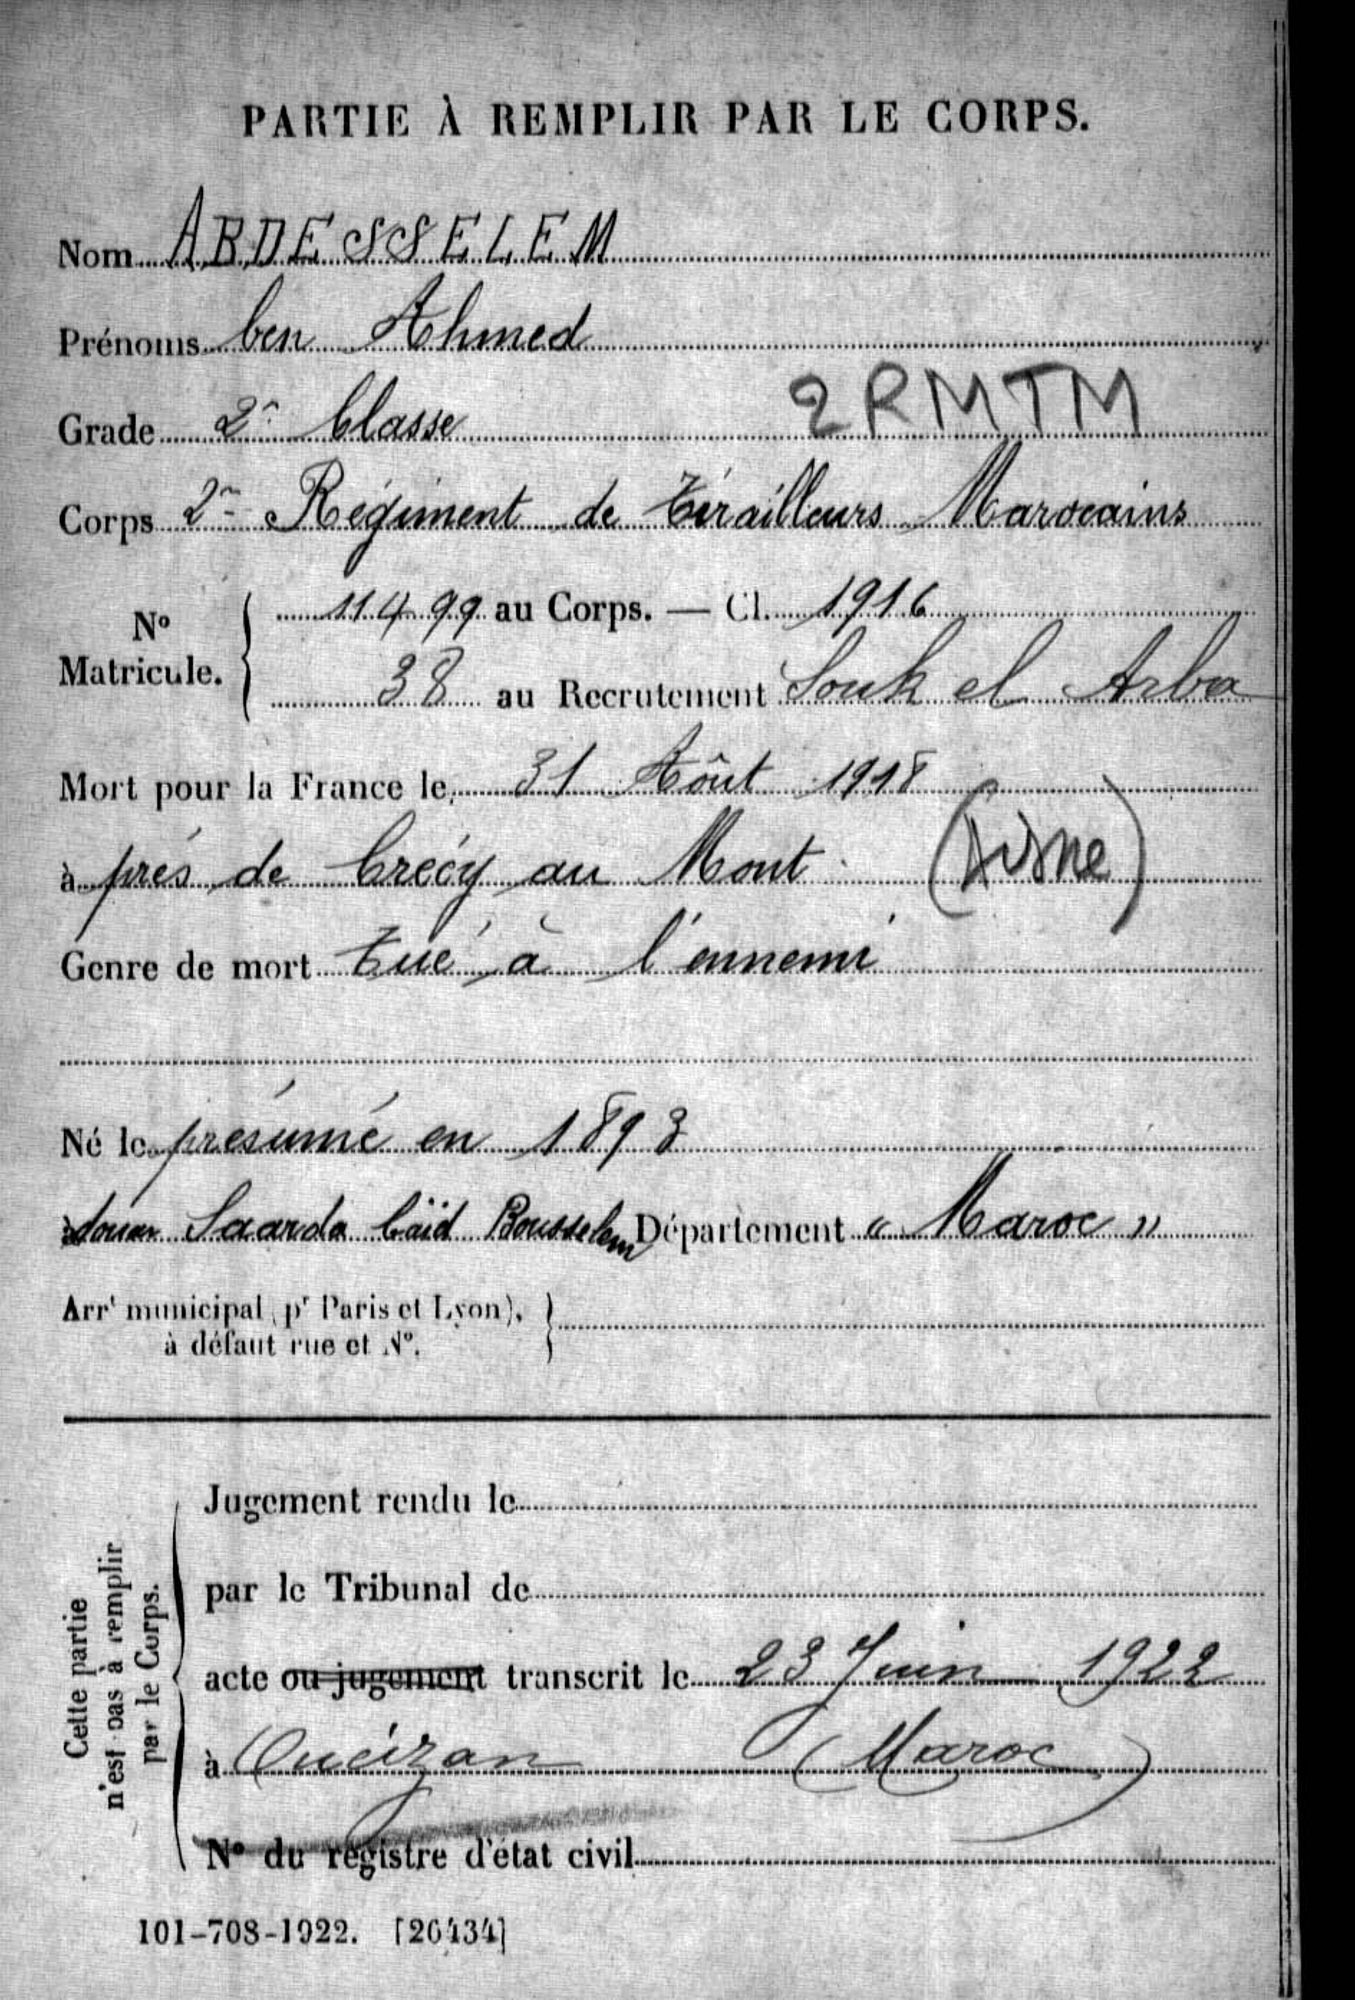 PARTIE À REMPLIR PAR LE CORPS.
Nom ABDESSELEM
Prénoms ben Ahmed
Grade 2e Classe 2RMTM
Corps 2e Régiment de Tirailleurs Marocains
No Matricule. 11499 au Corps. — Cl. 1916
38 au Recrutement Souk el Arba
Mort pour la France le 31 Août 1918
à près de Crécy au Mont (Aisne)
Genre de mort Tué à l'ennemi
Né le présumé en 1893
à douar Saarda Caïd Bousselem Département « Maroc »
Arrt municipal (pr Paris et Lyon),
à défaut rue et No.
Cette partie
n'est pas à remplir
par le Corps.
Jugement rendu le
par le Tribunal de
acte ou jugement transcrit le 23 Juin 1922
à Oueizan (Maroc)
No du registre d'état civil
101-708-1922. [26434]